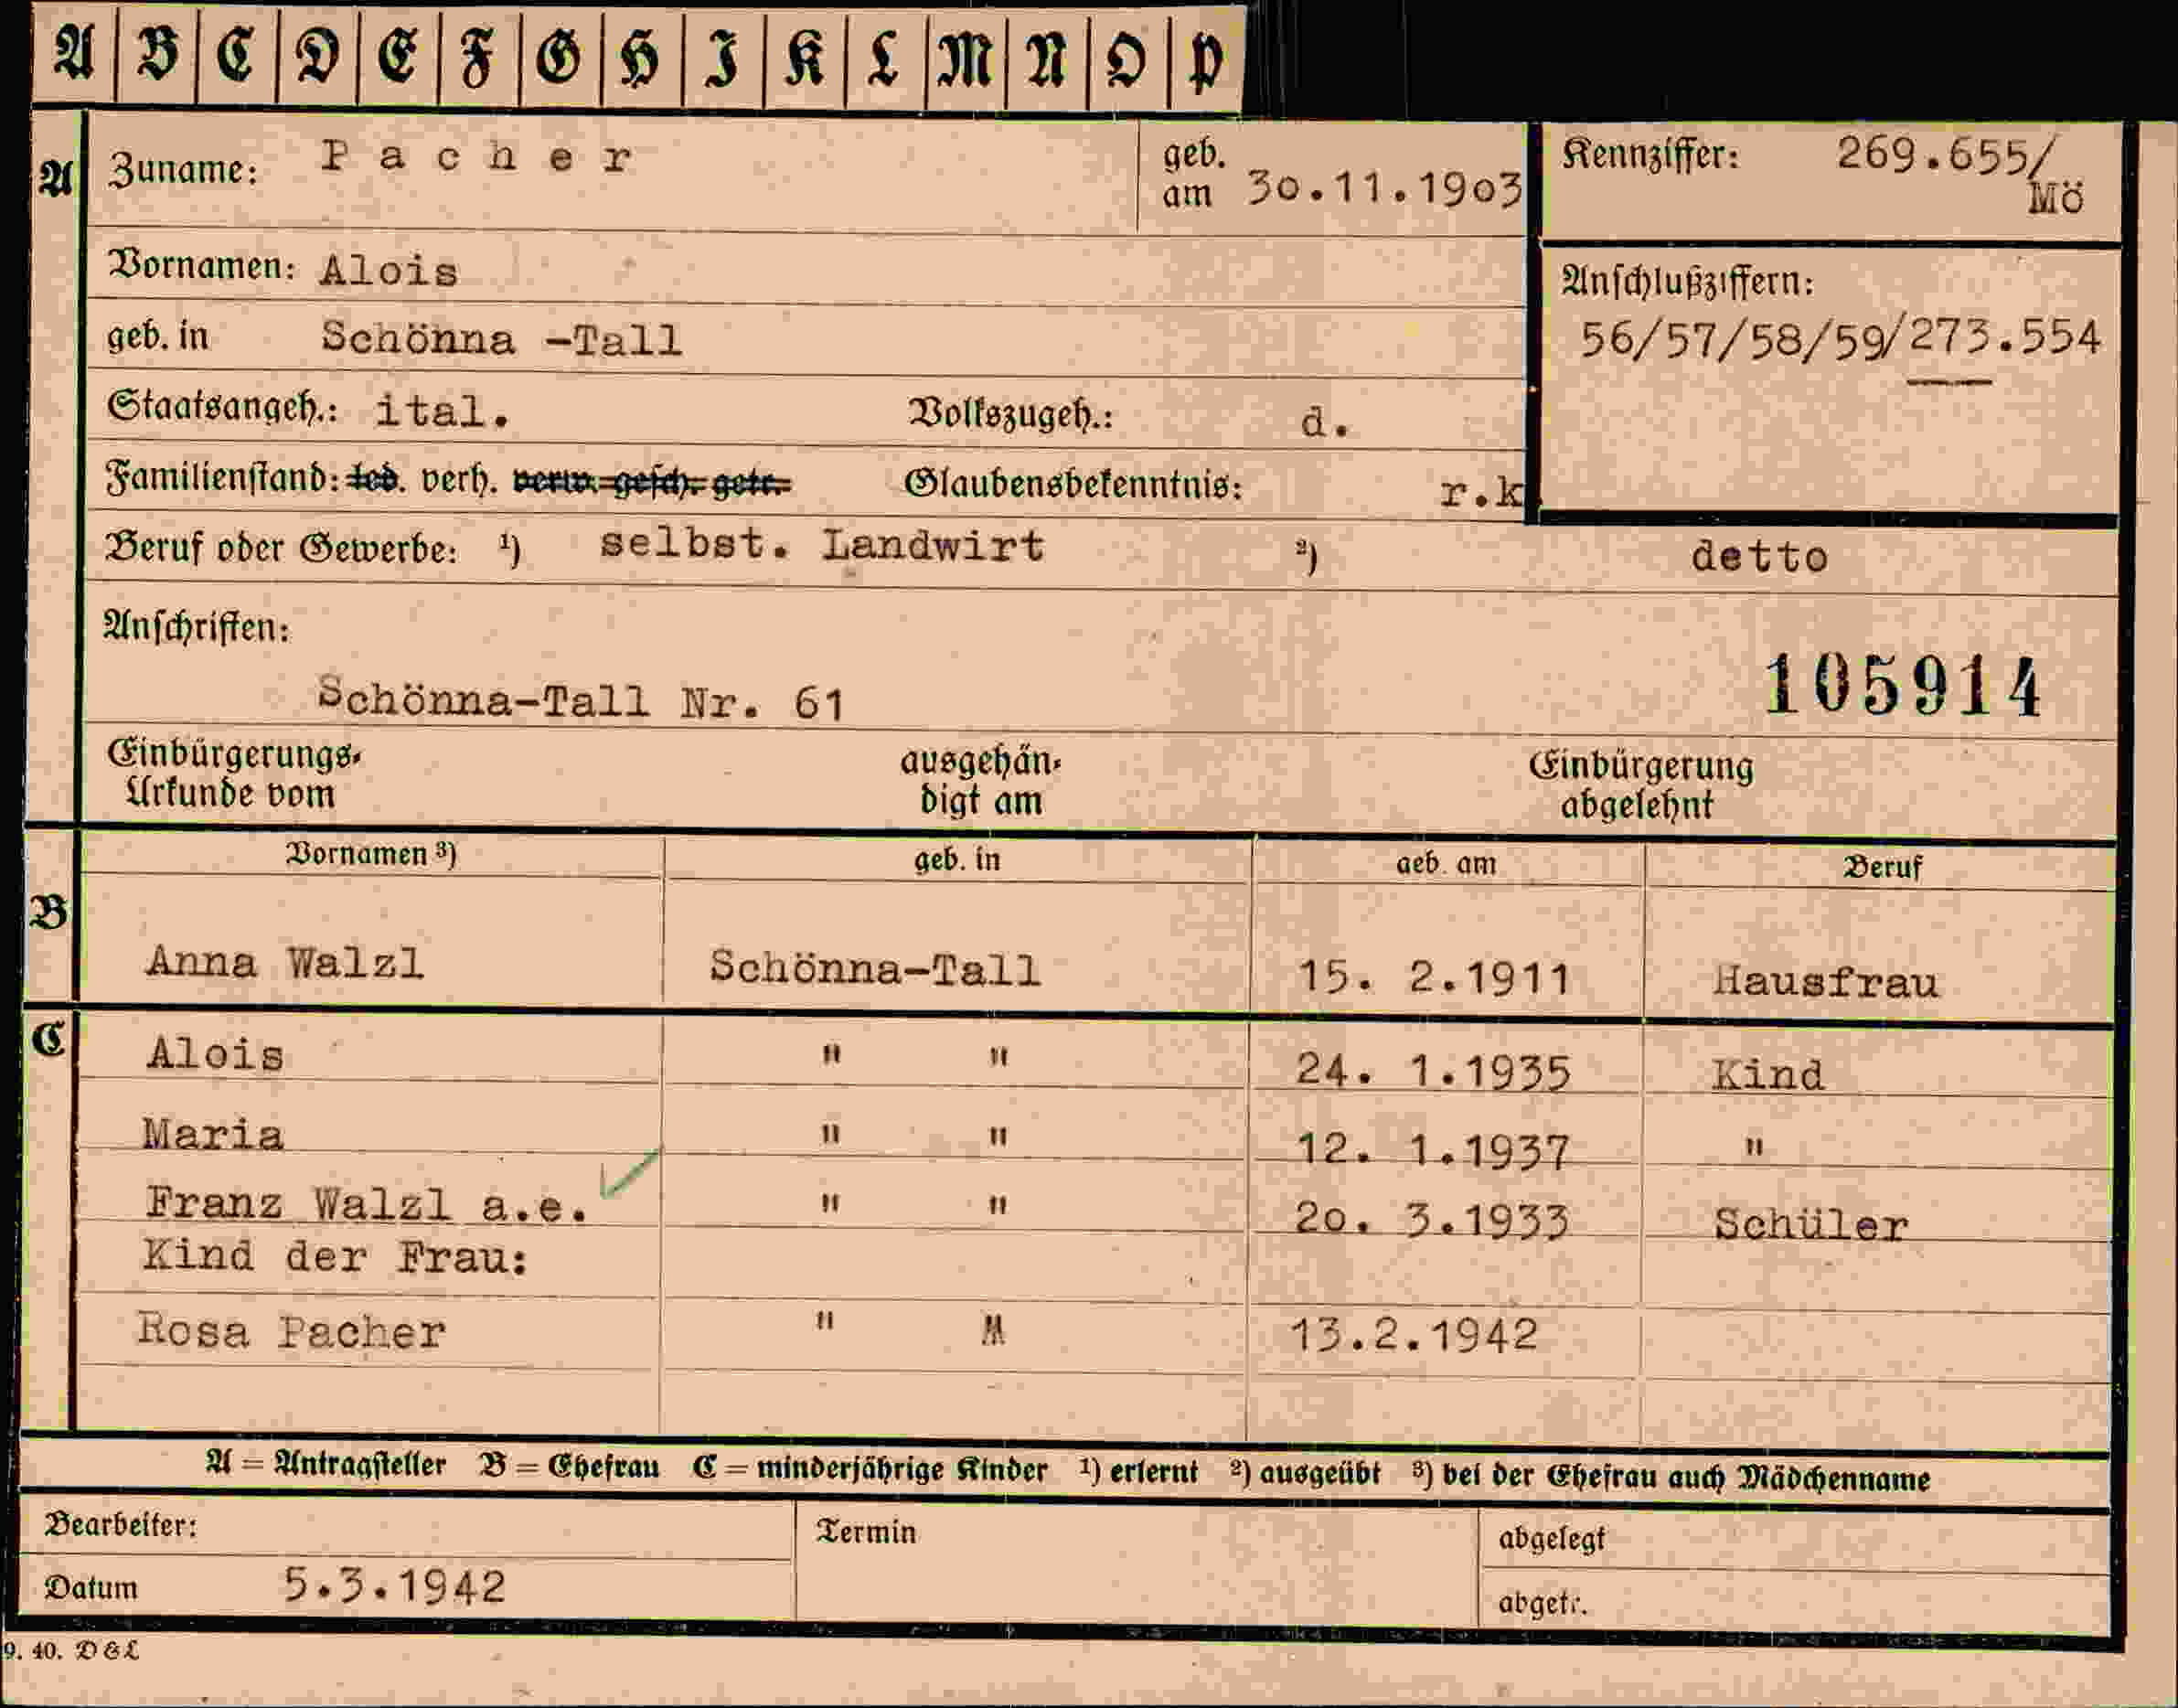 A B C D E F G H I K L M N O P
A Zuname: Pacher geb. am 30.11.1903 Kennziffer: 269.655/Mö
Vornamen: Alois
Anschlußziffern:
geb. in Schönna -Tall 56/57/58/59/273.554
Staatsangeh.: ital. Volkszugeh.: d.
Familienstand: led. verh. verw. gesch. getr. Glaubensbekenntnis: r.k
Beruf oder Gewerbe: ¹) selbst. Landwirt ²) detto
Anschriften:
105914
Schönna-Tall Nr. 61
Einbürgerungs- ausgehän- Einbürgerung
Urkunde vom digt am abgelehnt
Vornamen ³) geb. in geb. am Beruf
B
Anna Walzl Schönna-Tall 15. 2.1911 Hausfrau
C
Alois " " 24. 1.1935 Kind
Maria " " 12. 1.1937 "
Franz Walzl a.e. " " 20. 3.1933 Schüler
Kind der Frau:
Rosa Pacher " " 13.2.1942
A = Antragsteller B = Ehefrau C = minderjährige Kinder ¹) erlernt ²) ausgeübt ³) bei der Ehefrau auch Mädchenname
Bearbeiter: Termin abgelegt
Datum 5.3.1942 abgetr.
9. 40. D&L